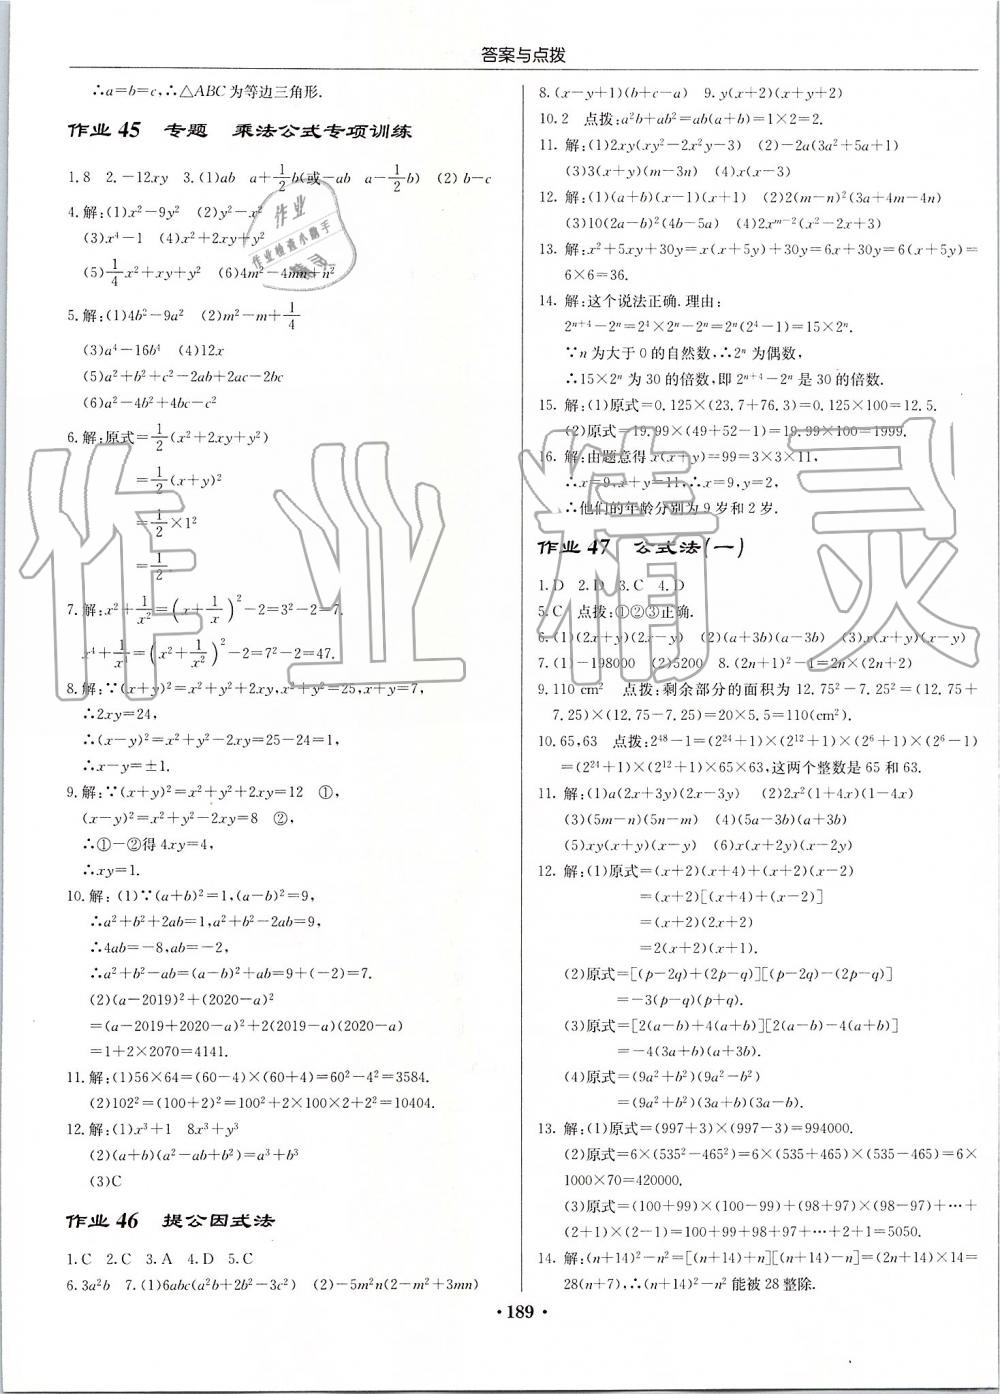 答案与点拨
∴a=b=c,∴△ABC为等边三角形.
作业45 专题 乘法公式专项训练
1.8 2.-12xy 3.(1)ab a+\frac{1}{2}b(或-ab a-\frac{1}{2}b) (2)b-c
4.解:(1)x²-9y² (2)y²-x²
(3)x⁴-1 (4)x²+2xy+y²
(5)\frac{1}{4}x²+xy+y² (6)4m²-4mn+n²
5.解:(1)4b²-9a² (2)m²-m+\frac{1}{4}
(3)a⁴-16b⁴ (4)12x
(5)a²+b²+c²-2ab+2ac-2bc
(6)a²-4b²+4bc-c²
6.解:原式=\frac{1}{2}(x²+2xy+y²)
=\frac{1}{2}(x+y)²
=\frac{1}{2}×1²
=\frac{1}{2}
7.解:x²+\frac{1}{x²}=(x+\frac{1}{x})²-2=3²-2=7.
x⁴+\frac{1}{x⁴}=(x²+\frac{1}{x²})²-2=7²-2=47.
8.解:∵(x+y)²=x²+y²+2xy,x²+y²=25,x+y=7,
∴2xy=24,
∴(x-y)²=x²+y²-2xy=25-24=1,
∴x-y=±1.
9.解:∵(x+y)²=x²+y²+2xy=12 ①,
(x-y)²=x²+y²-2xy=8 ②,
∴①-②得4xy=4,
∴xy=1.
10.解:(1)∵(a+b)²=1,(a-b)²=9,
∴a²+b²+2ab=1,a²+b²-2ab=9,
∴4ab=-8,ab=-2,
∴a²+b²-ab=(a-b)²+ab=9+(-2)=7.
(2)(a-2019)²+(2020-a)²
=(a-2019+2020-a)²+2(2019-a)(2020-a)
=1+2×2070=4141.
11.解:(1)56×64=(60-4)×(60+4)=60²-4²=3584.
(2)102²=(100+2)²=100²+2×100×2+2²=10404.
12.解:(1)x³+1 8x³+y³
(2)(a+b)(a²-ab+b²)=a³+b³
(3)C
作业46 提公因式法
1.C 2.C 3.A 4.D 5.C
6.3a²b 7.(1)6abc(2ab+2b²-3c²) (2)-5m²n(2-m²+3mn)
8.(x-y+1)(b+c-a) 9.y(x+2)(x+y+2)
10.2 点拨:a²b+ab²=ab(a+b)=1×2=2.
11.解:(1)2xy(xy²-2x²y-3) (2)-2a(3a²+5a+1)
(3)3(x+y)(m-3n) (4)x(x-3)
12.解:(1)(a+b)(x-1)(x+1) (2)2(m-n)²(3m+4m-4n)
(3)10(2a-b)²(4b-5a) (4)2xᵐ⁻²(x²-2x+3)
13.解:x²+5xy+30y=x(x+5y)+30y=6x+30y=6(x+5y)=
6×6=36.
14.解:这个说法正确.理由:
2ⁿ⁺⁴-2ⁿ=2⁴×2ⁿ-2ⁿ=2ⁿ(2⁴-1)=15×2ⁿ.
∵n为大于0的自然数,∴2ⁿ为偶数,
∴15×2ⁿ为30的倍数,即2ⁿ⁺⁴-2ⁿ是30的倍数.
15.解:(1)原式=0.125×(23.7+76.3)=0.125×100=12.5.
(2)原式=19.99×(49+52-1)=19.99×100=1999.
16.解:由题意得x(x+y)=99=3×3×11,
∴x=9,x+y=11,∴x=9,y=2,
∴他们的年龄分别为9岁和2岁.
作业47 公式法(一)
1.D 2.D 3.C 4.D
5.C 点拨:①②③正确.
6.(1)(2x+y)(2x-y) (2)(a+3b)(a-3b) (3)x(x+y)(x-y)
7.(1)-198000 (2)5200 8.(2n+1)²-1=2n×(2n+2)
9.110 cm² 点拨:剩余部分的面积为12.75²-7.25²=(12.75+
7.25)×(12.75-7.25)=20×5.5=110(cm²).
10.65,63 点拨:2⁴⁸-1=(2²⁴+1)×(2¹²+1)×(2⁶+1)×(2⁶-1)
=(2²⁴+1)×(2¹²+1)×65×63,这两个整数是65和63.
11.解:(1)a(2x+3y)(2x-3y) (2)2x²(1+4x)(1-4x)
(3)(5m-n)(5n-m) (4)(5a-3b)(a+3b)
(5)xy(x+y)(x-y) (6)x(x+2y)(x-2y)
12.解:(1)原式=(x+2)(x+4)+(x+2)(x-2)
=(x+2)[(x+4)+(x-2)]
=(x+2)(2x+2)
=2(x+2)(x+1).
(2)原式=[(p-2q)+(2p-q)][(p-2q)-(2p-q)]
=-3(p-q)(p+q).
(3)原式=[2(a-b)+4(a+b)][2(a-b)-4(a+b)]
=-4(3a+b)(a+3b).
(4)原式=(9a²+b²)(9a²-b²)
=(9a²+b²)(3a+b)(3a-b).
13.解:(1)原式=(997+3)×(997-3)=994000.
(2)原式=6×(535²-465²)=6×(535+465)×(535-465)=6×
1000×70=420000.
(3)原式=(100+99)×(100-99)+(98+97)×(98-97)+…+
(2+1)×(2-1)=100+99+98+97+…+2+1=5050.
14.解:(n+14)²-n²=[(n+14)+n][(n+14)-n]=(2n+14)×14=
28(n+7),∴(n+14)²-n²能被28整除.
·189·
作业
作业检查小助手
作业精灵